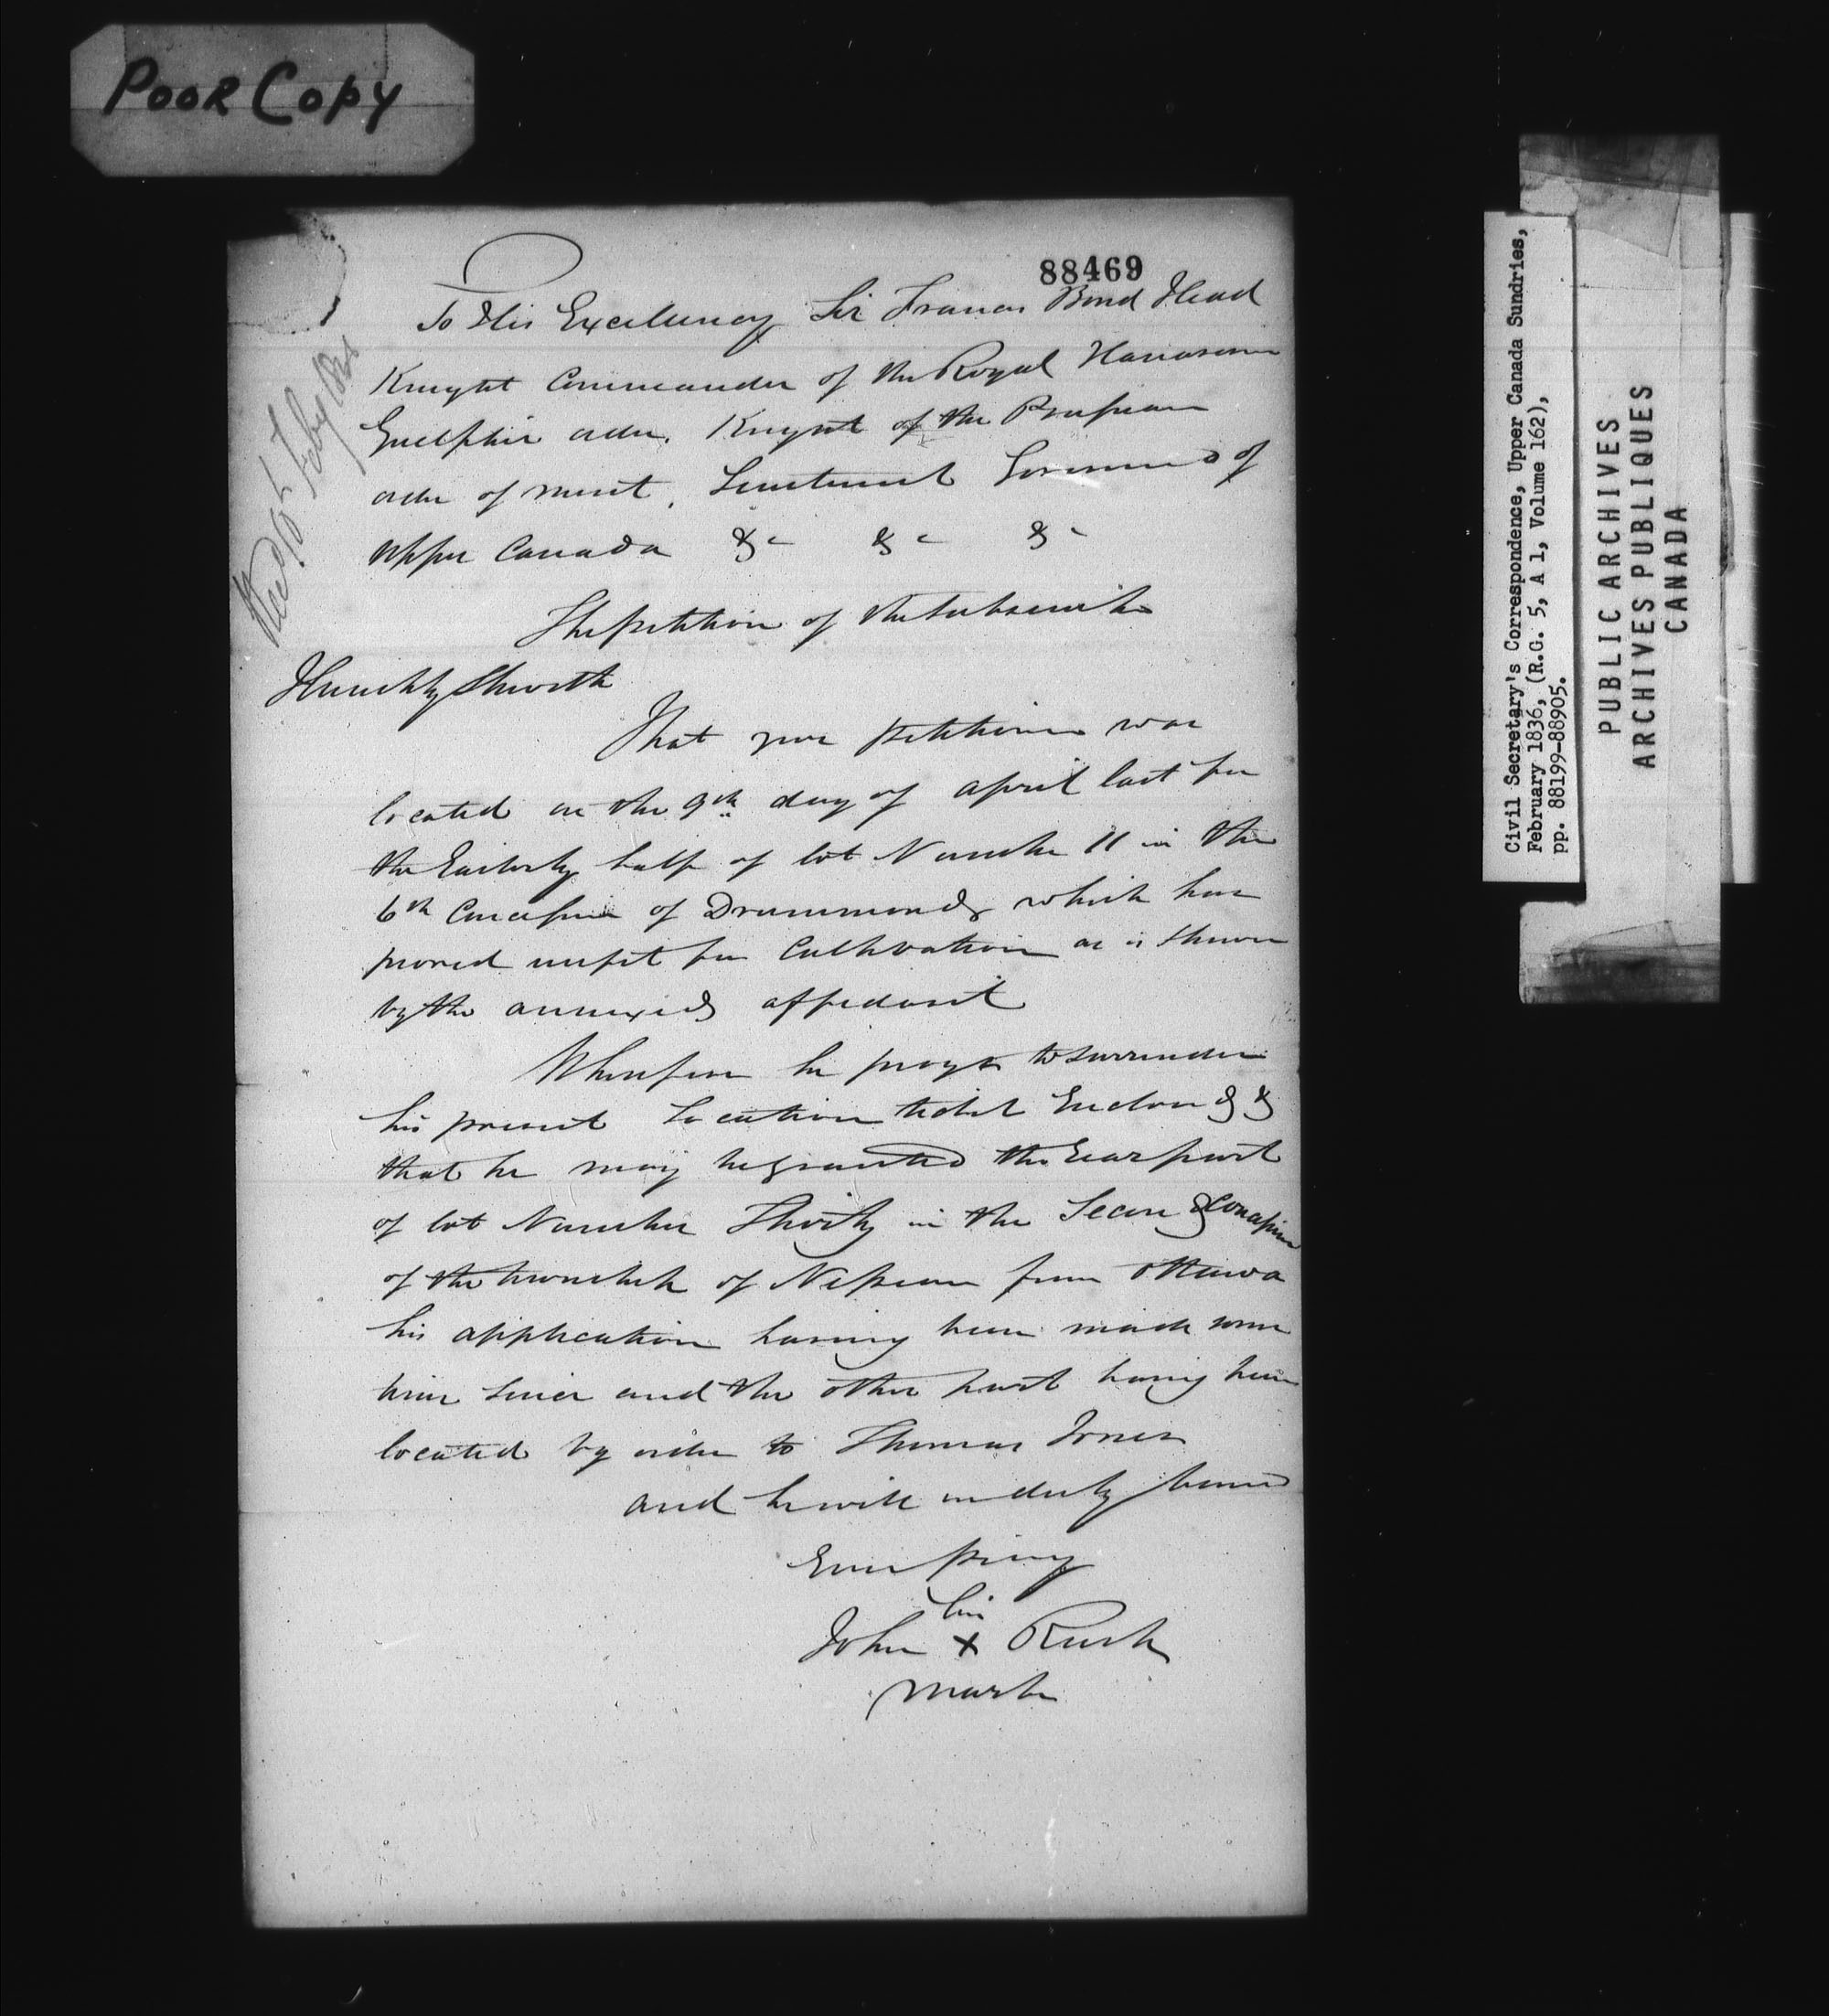 POOR COPY
88469
To His Excellency Sir Francis Bond Head
Knight Commander of the Royal Hanoverian
Guelphic order. Knight of the Prussian
order of merit, Lieutenant Governor of
upper Canada &c &c &c
The petition of the subscriber
Humbly Sheweth
That your petitioner was
located on the 9th day of april last for
the Easterly half of lot Number 11 in the
6th Concession of Drummond which has
proved unfit for Cultivation as is shewn
by the annexed affidavit
Wherefore he prays to surrender
his present Location ticket Enclosed &
that he may be granted the Rear part
of lot Number Thirty in the Second Concession
of the township of Nepean from Ottawa
his application having been made some
time since and the other part having been
located by order to Thomas Jones
and he will in duty bound
Ever pray
his
John X Rusk
mark
Civil Secretary's Correspondence, Upper Canada Sundries,
February 1836, (R.G. 5, A 1, Volume 162),
pp. 88199-88905.
PUBLIC ARCHIVES
ARCHIVES PUBLIQUES
CANADA